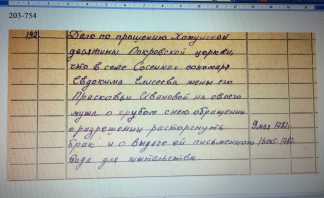 203-754
192 Дело по прошению Хатунской
десятины Покровской церкви,
что в селе Сосенках пономаря
Евдокима Елисеева жены его
Прасковьи Ивановой на своего
мужа о грубом с нею обращении
о разрешении расторгнуть 9 мая 1782
брак и о выдаче ей письменного 16 окт. 1782
вида для жительства.